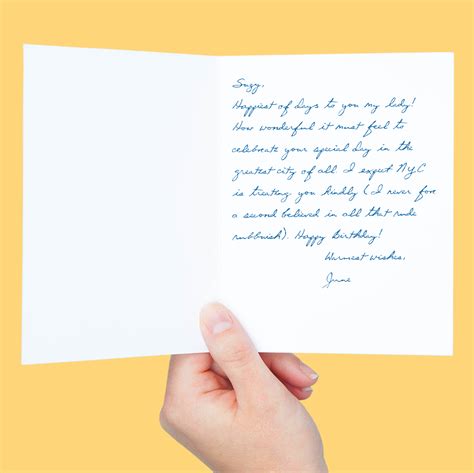 Suzy,
Happiest of days to you my lady!
How wonderful it must feel to
celebrate your special day in the
greatest city of all. I expect NYC
is treating you kindly (I never for
a second believed in all that rude
rubbish). Happy Birthday!
Warmest wishes,
June